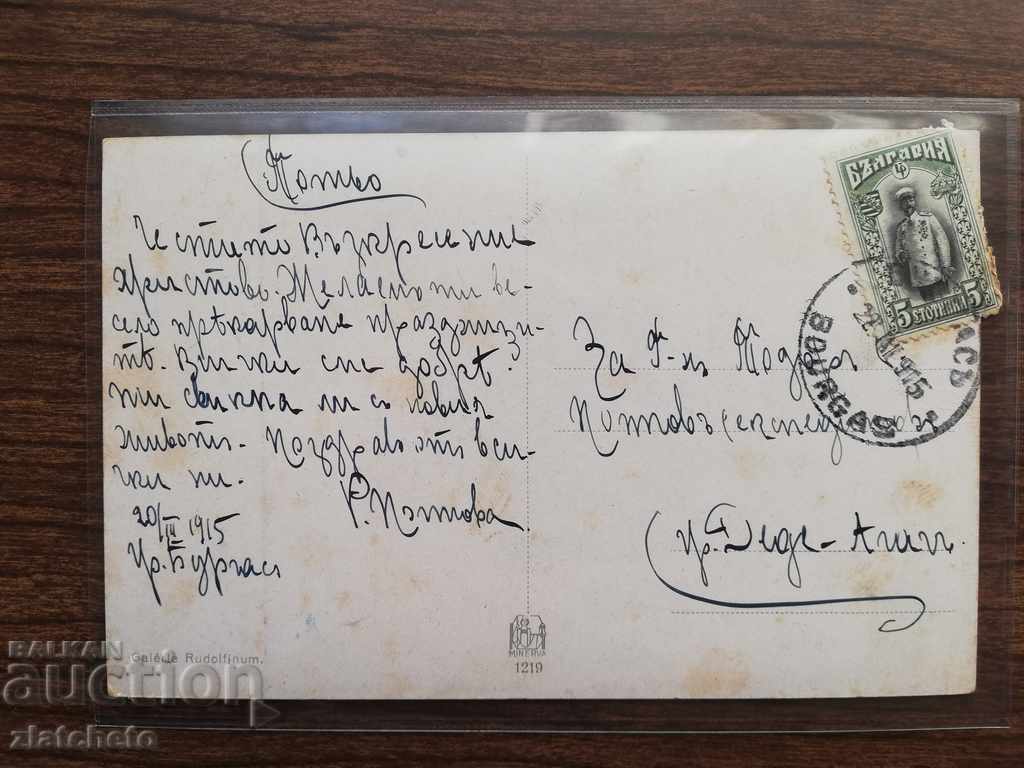 Потьо
Честито Възкресение
Христово. Желаем ти ве-
село прѣкарване празници-
тѣ. Всички сме добрѣ.
ни ли съ новия
животъ. Поздрав от вси-
чки ни.
Р. Пѣтова
20/III 1915
гр. Бургас
За Г-нъ Тодоръ
Потовъ
гр. Деде-Агачъ
БЪЛГАРИЯ
5 СТОТИНКИ 5
BOURGAS
1915
Galerie Rudolfinum.
MINERVA
1219
BALKAN
auction
zlatcheto